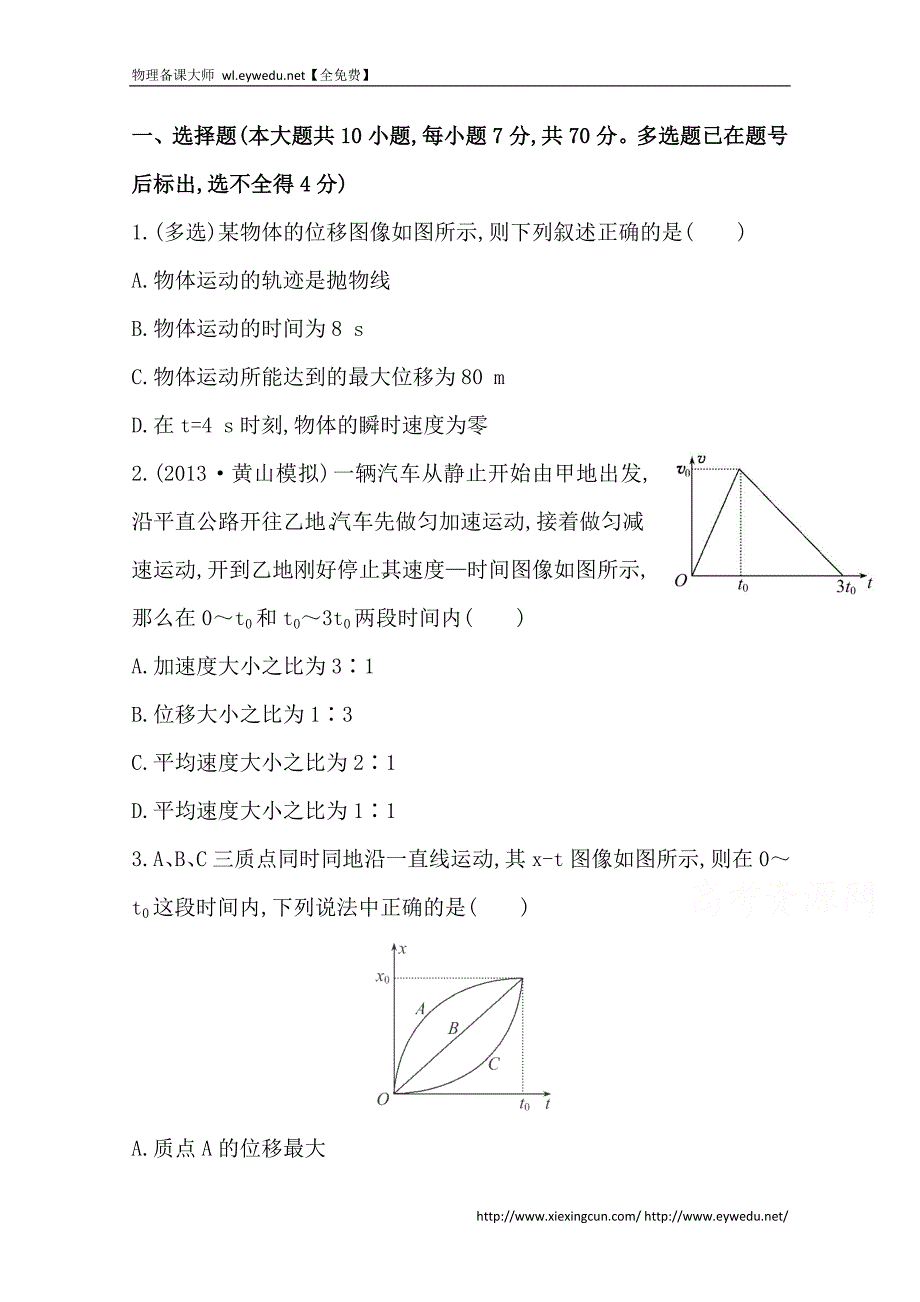 物理备课大师 wl.eywedu.net【全免费】
一、选择题(本大题共10小题,每小题7分,共70分。多选题已在题号
后标出,选不全得4分)
1.(多选)某物体的位移图像如图所示,则下列叙述正确的是(　　)
A.物体运动的轨迹是抛物线
B.物体运动的时间为8 s
C.物体运动所能达到的最大位移为80 m
D.在t=4 s时刻,物体的瞬时速度为零
2.(2013·黄山模拟)一辆汽车从静止开始由甲地出发,
沿平直公路开往乙地,汽车先做匀加速运动,接着做匀减
速运动,开到乙地刚好停止其速度—时间图像如图所示,
那么在0～t0和t0～3t0两段时间内(　　)
v
v0
O
t0
3t0
t
A.加速度大小之比为3∶1
B.位移大小之比为1∶3
C.平均速度大小之比为2∶1
D.平均速度大小之比为1∶1
3.A、B、C三质点同时同地沿一直线运动,其x-t图像如图所示,则在0～
t0这段时间内,下列说法中正确的是(　　)
高考资源网
x
x0
A
B
C
O
t0
t
A.质点A的位移最大
http://www.xiexingcun.com/ http://www.eywedu.net/